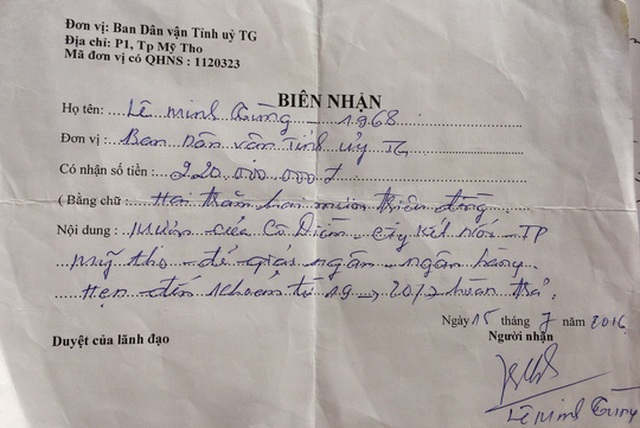 Đơn vị: Ban Dân vận Tỉnh uỷ TG
Địa chỉ: P1, Tp Mỹ Tho
Mã đơn vị có QHNS : 1120323
BIÊN NHẬN
Họ tên: Lê Minh Tùng - 1968
Đơn vị : Ban Dân vận Tỉnh ủy TG
Có nhận số tiền : 220.000.000 đ
( Bằng chữ : Hai trăm hai mươi triệu đồng
Nội dung : Mượn của Cô Diễm - Cty Kết Nối - TP
Mỹ Tho - để giải ngân - ngân hàng
Hẹn đến khoản từ 19 → 20/7 hoàn trả.
Ngày 15 tháng 7 năm 2016
Duyệt của lãnh đạo
Người nhận
Lê Minh Tùng